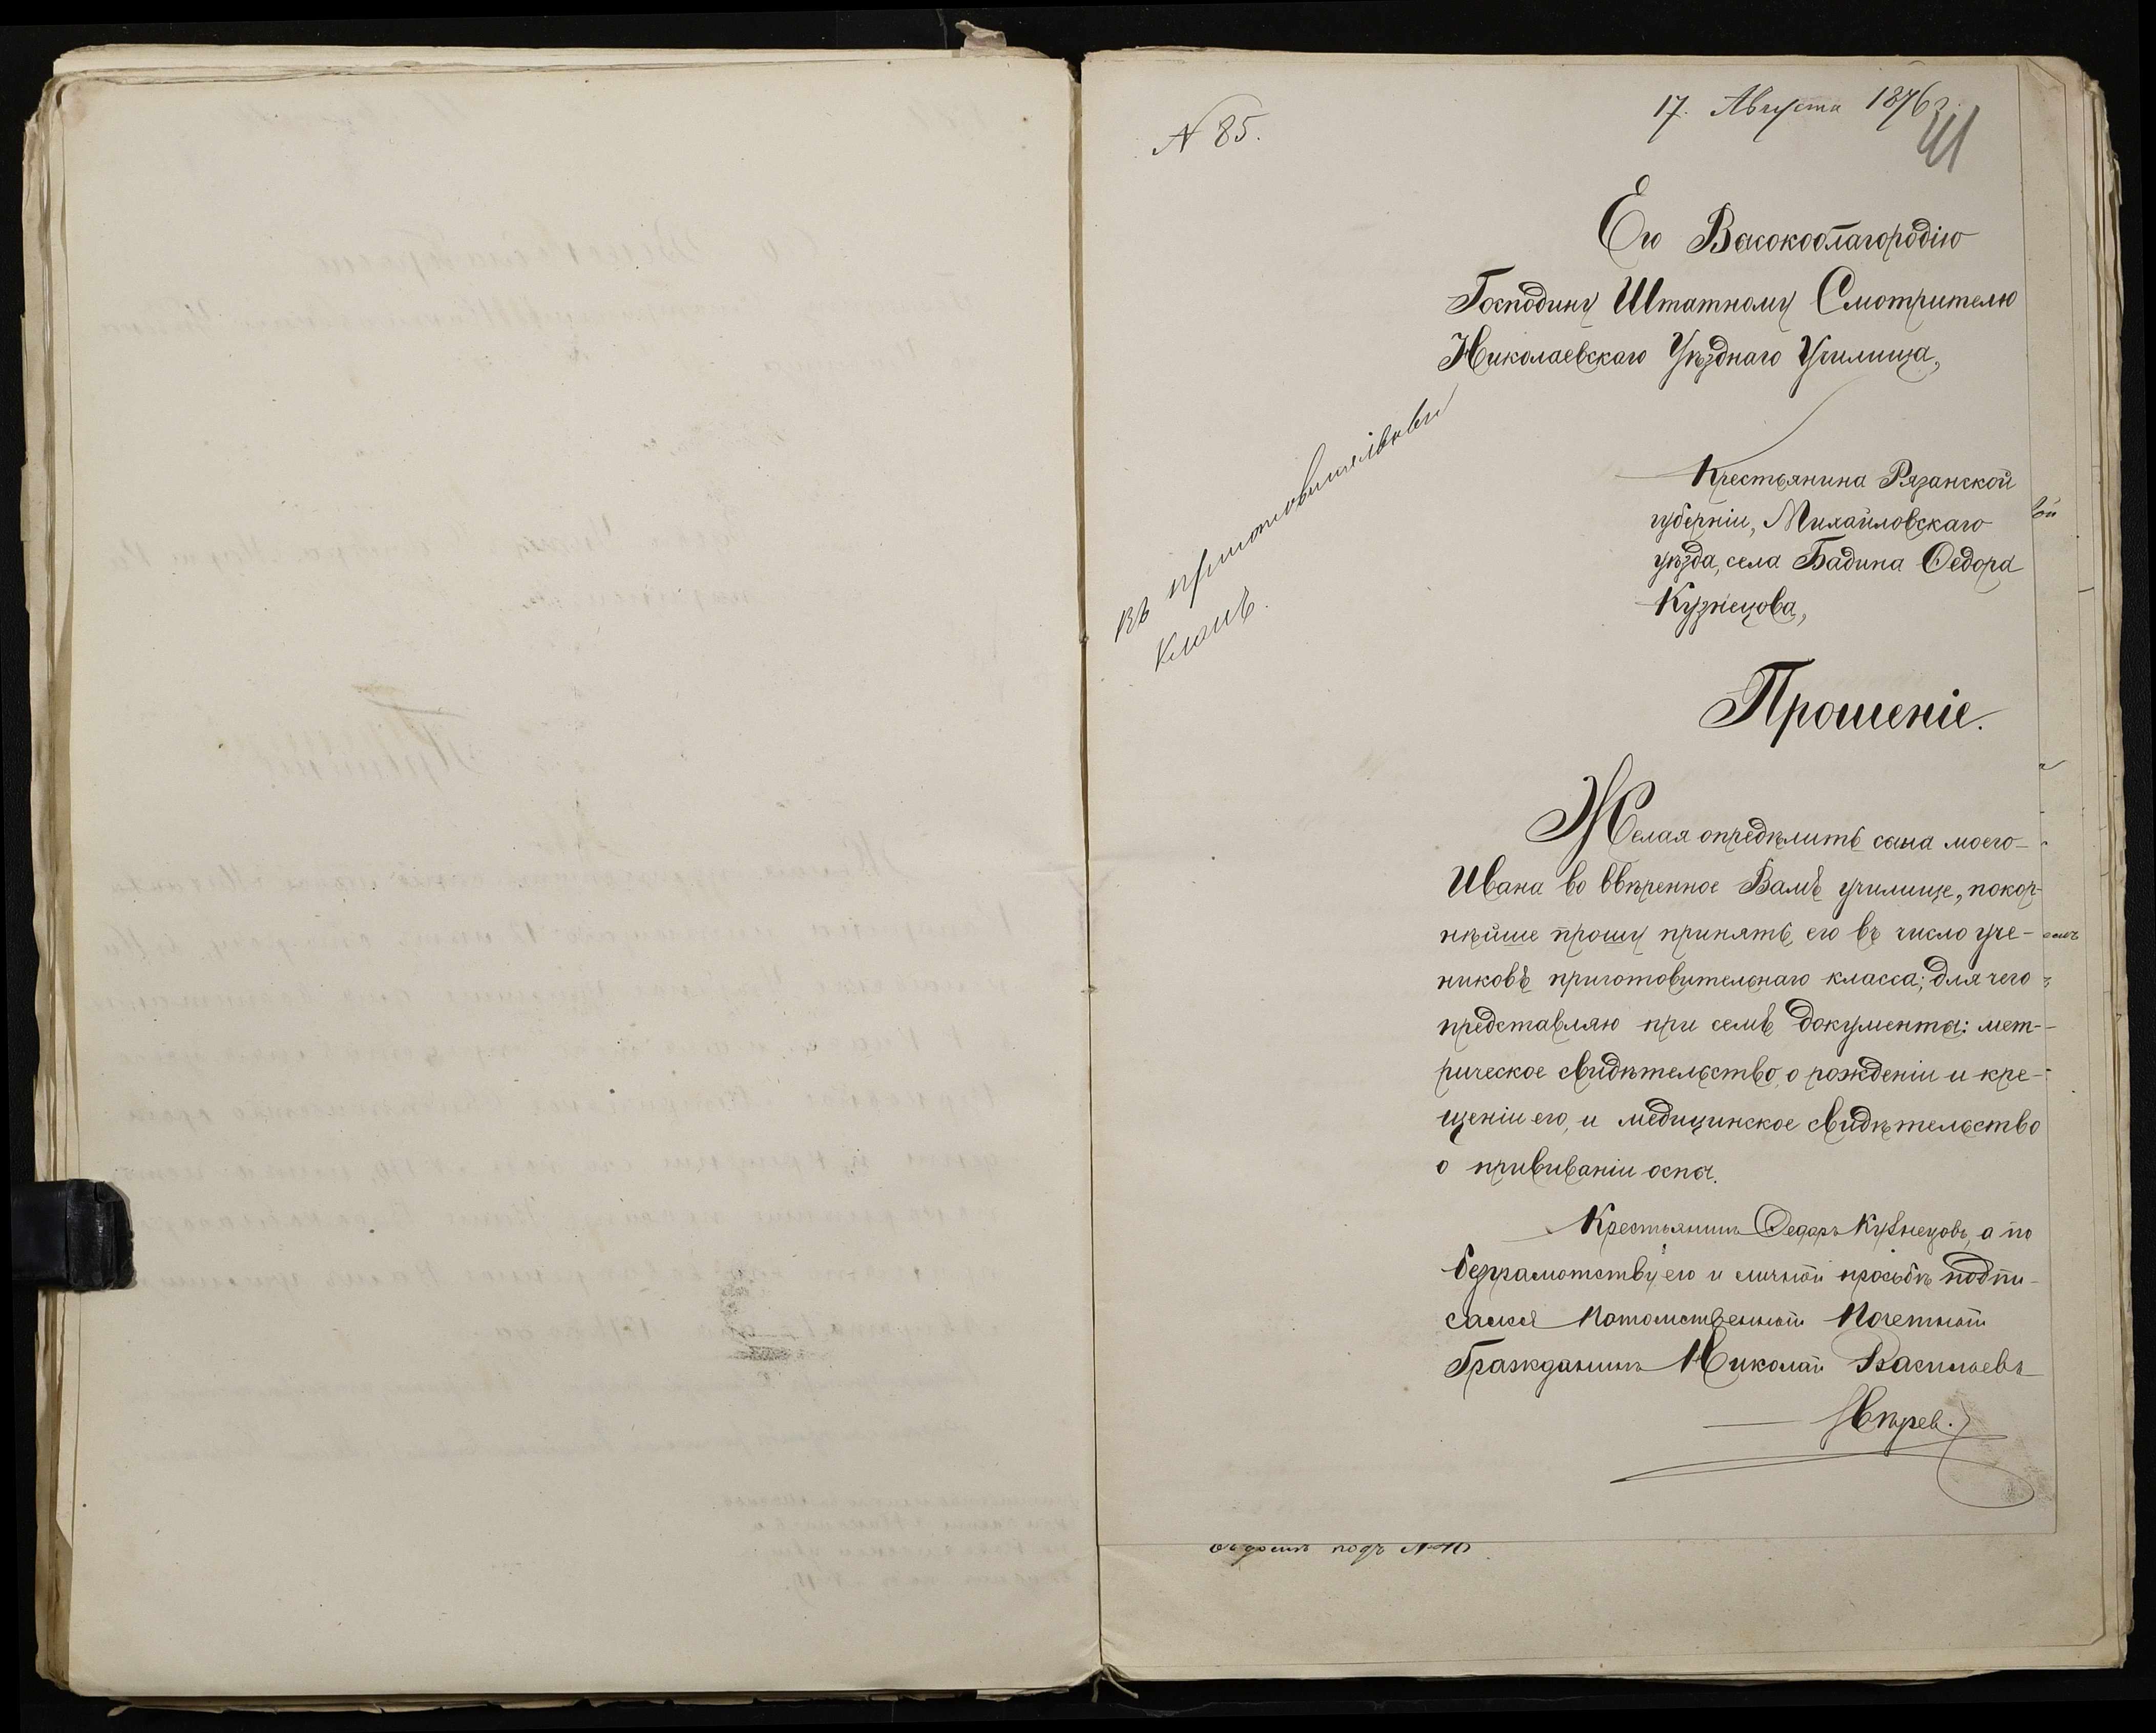 N 85.
17. Августа 1876 г.
41
Его Высокоблагородію
Господину Штатному Смотрителю
Николаевскаго Уѣзднаго Училища,
Крестьянина Рязанской
губерніи, Михайловскаго
уѣзда, села Бадина Ѳедора
Кузнецова,
въ приготовительный
классъ.
Прошеніе.
Желая опредѣлить сына моего
Ивана во ввѣренное Вамъ училище, покор-
нѣйше прошу принять его въ число уче-
никовъ приготовительнаго класса; для чего
представляю при семъ документы: мет-
рическое свидѣтельство о рожденіи и кре-
щеніи его, и медицинское свидѣтельство
о прививаніи оспы.
Крестьянинъ Ѳедоръ Кузнецовъ, а по
безграмотству его и личной просьбѣ подпи-
сался Потомственный Почетный
Гражданинъ Николай Васильевъ
подъ №